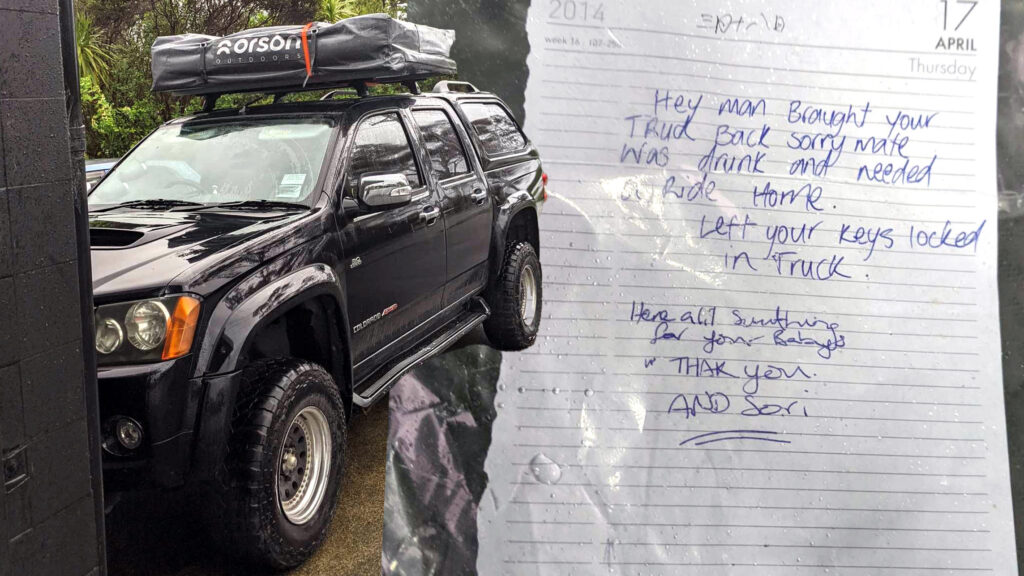 orson
OUTDOORS
COLORADO
2014
week 16
17
APRIL
Thursday
Hey man Braught your
Truck Back sorry mate
Was drunk and needed
a Ride Home.
Left your keys locked
in Truck.
Here alil Sumthing
for your
" THAK you.
AND Sori